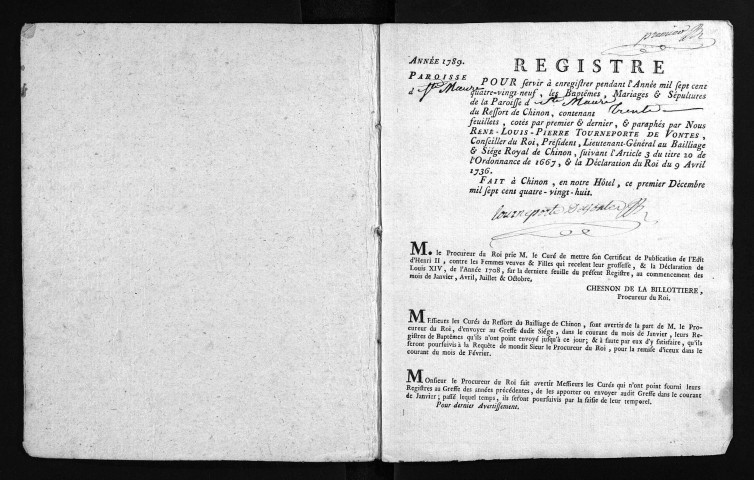 premier
ANNÉE 1789.
REGISTRE
PAROISSE
d Ste Maure
POUR servir à enregistrer pendant l'Année mil sept cent
quatre-vingt-neuf, les Baptêmes, Mariages & Sépultures
de la Paroisse d Ste Maure
du Ressort de Chinon, contenant trente
feuillets, cotés par premier & dernier, & paraphés par Nous
RENÉ-LOUIS-PIERRE TOURNEPORTE DE VONTES,
Conseiller du Roi, Président, Lieutenant-Général au Bailliage
& Siége Royal de Chinon, suivant l'Article 3 du titre 20 de
l'Ordonnance de 1667, & la Déclaration du Roi du 9 Avril
1736.
FAIT à Chinon, en notre Hôtel, ce premier Décembre
mil sept cent quatre-vingt-huit.
tourneporte Devontes
M. le Procureur du Roi prie M. le Curé de mettre son Certificat de Publication de l'Edit
d'Henri II, contre les Femmes veuves & Filles qui recelent leur grossesse, & la Déclaration de
Louis XIV, de l'Année 1708, sur la derniere feuille du présent Registre, au commencement des
mois de Janvier, Avril, Juillet & Octobre.
CHESNON DE LA BILLOTTIERE,
Procureur du Roi.
MEssieurs les Curés du Ressort du Bailliage de Chinon, sont avertis de la part de M. le Pro-
cureur du Roi, d'envoyer au Greffe dudit Siége, dans le courant du mois de Janvier, leurs Re-
gistres de Baptêmes qu'ils n'ont point envoyé jusqu'à ce jour; & à faute par eux d'y satisfaire, qu'ils
seront poursuivis à la Requête de mondit Sieur le Procureur du Roi, pour la remise d'iceux dans le
courant du mois de Février.
MOnsieur le Procureur du Roi fait avertir Messieurs les Curés qui n'ont point fourni leurs
Registres au Greffe des années précédentes, de les apporter ou envoyer audit Greffe dans le courant
de Janvier; passé lequel temps, ils seront poursuivis par la saisie de leur temporel.
Pour dernier Avertissement.